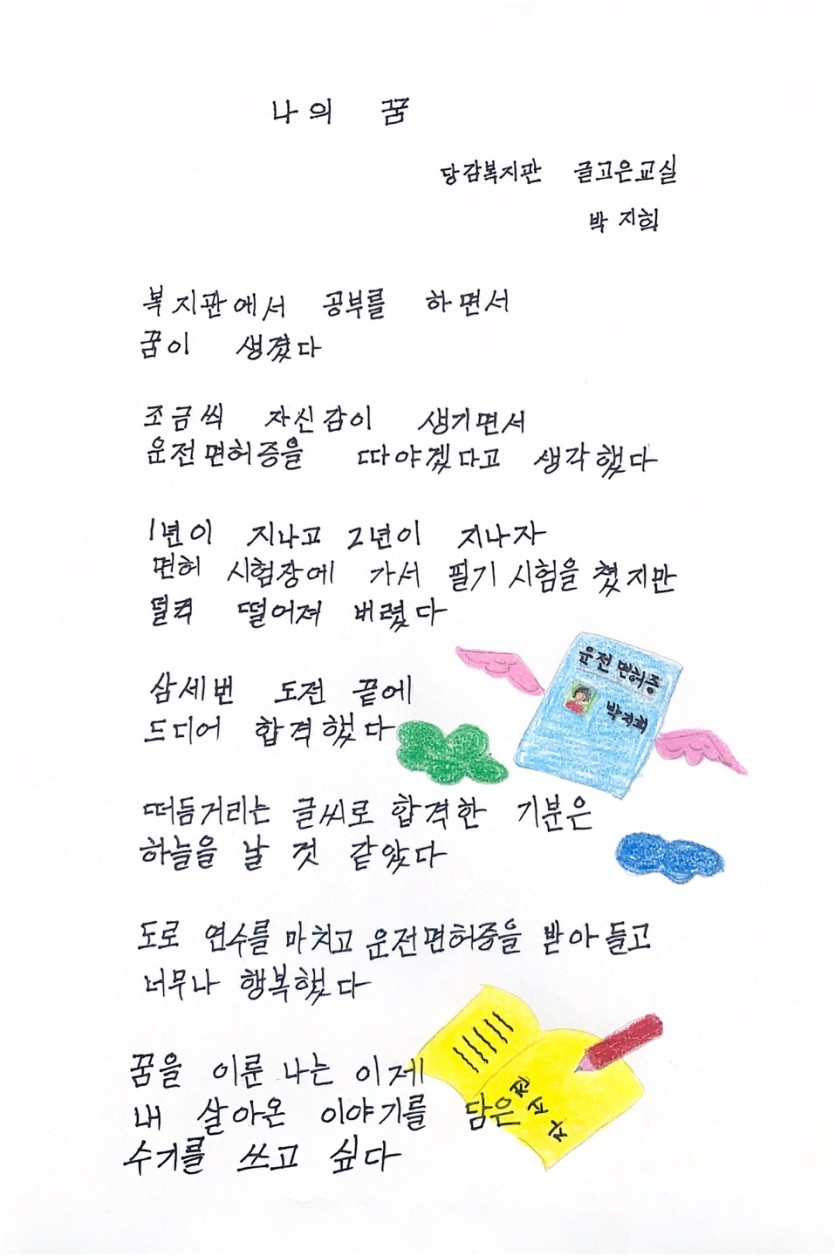 나의 꿈
당감복지관 글고은교실
박지희
복지관에서 공부를 하면서
꿈이 생겼다
조금씩 자신감이 생기면서
운전면허증을 따야겠다고 생각했다
1년이 지나고 2년이 지나자
면허 시험장에 가서 필기시험을 쳤지만
덜컥 떨어져 버렸다
삼세번 도전 끝에
드디어 합격했다
운전면허증
박지희
떠듬거리는 글씨로 합격한 기분은
하늘을 날 것 같았다
도로 연수를 마치고 운전면허증을 받아들고
너무나 행복했다
꿈을 이룬 나는 이제
내 살아온 이야기를 담은
수기를 쓰고 싶다
자서전